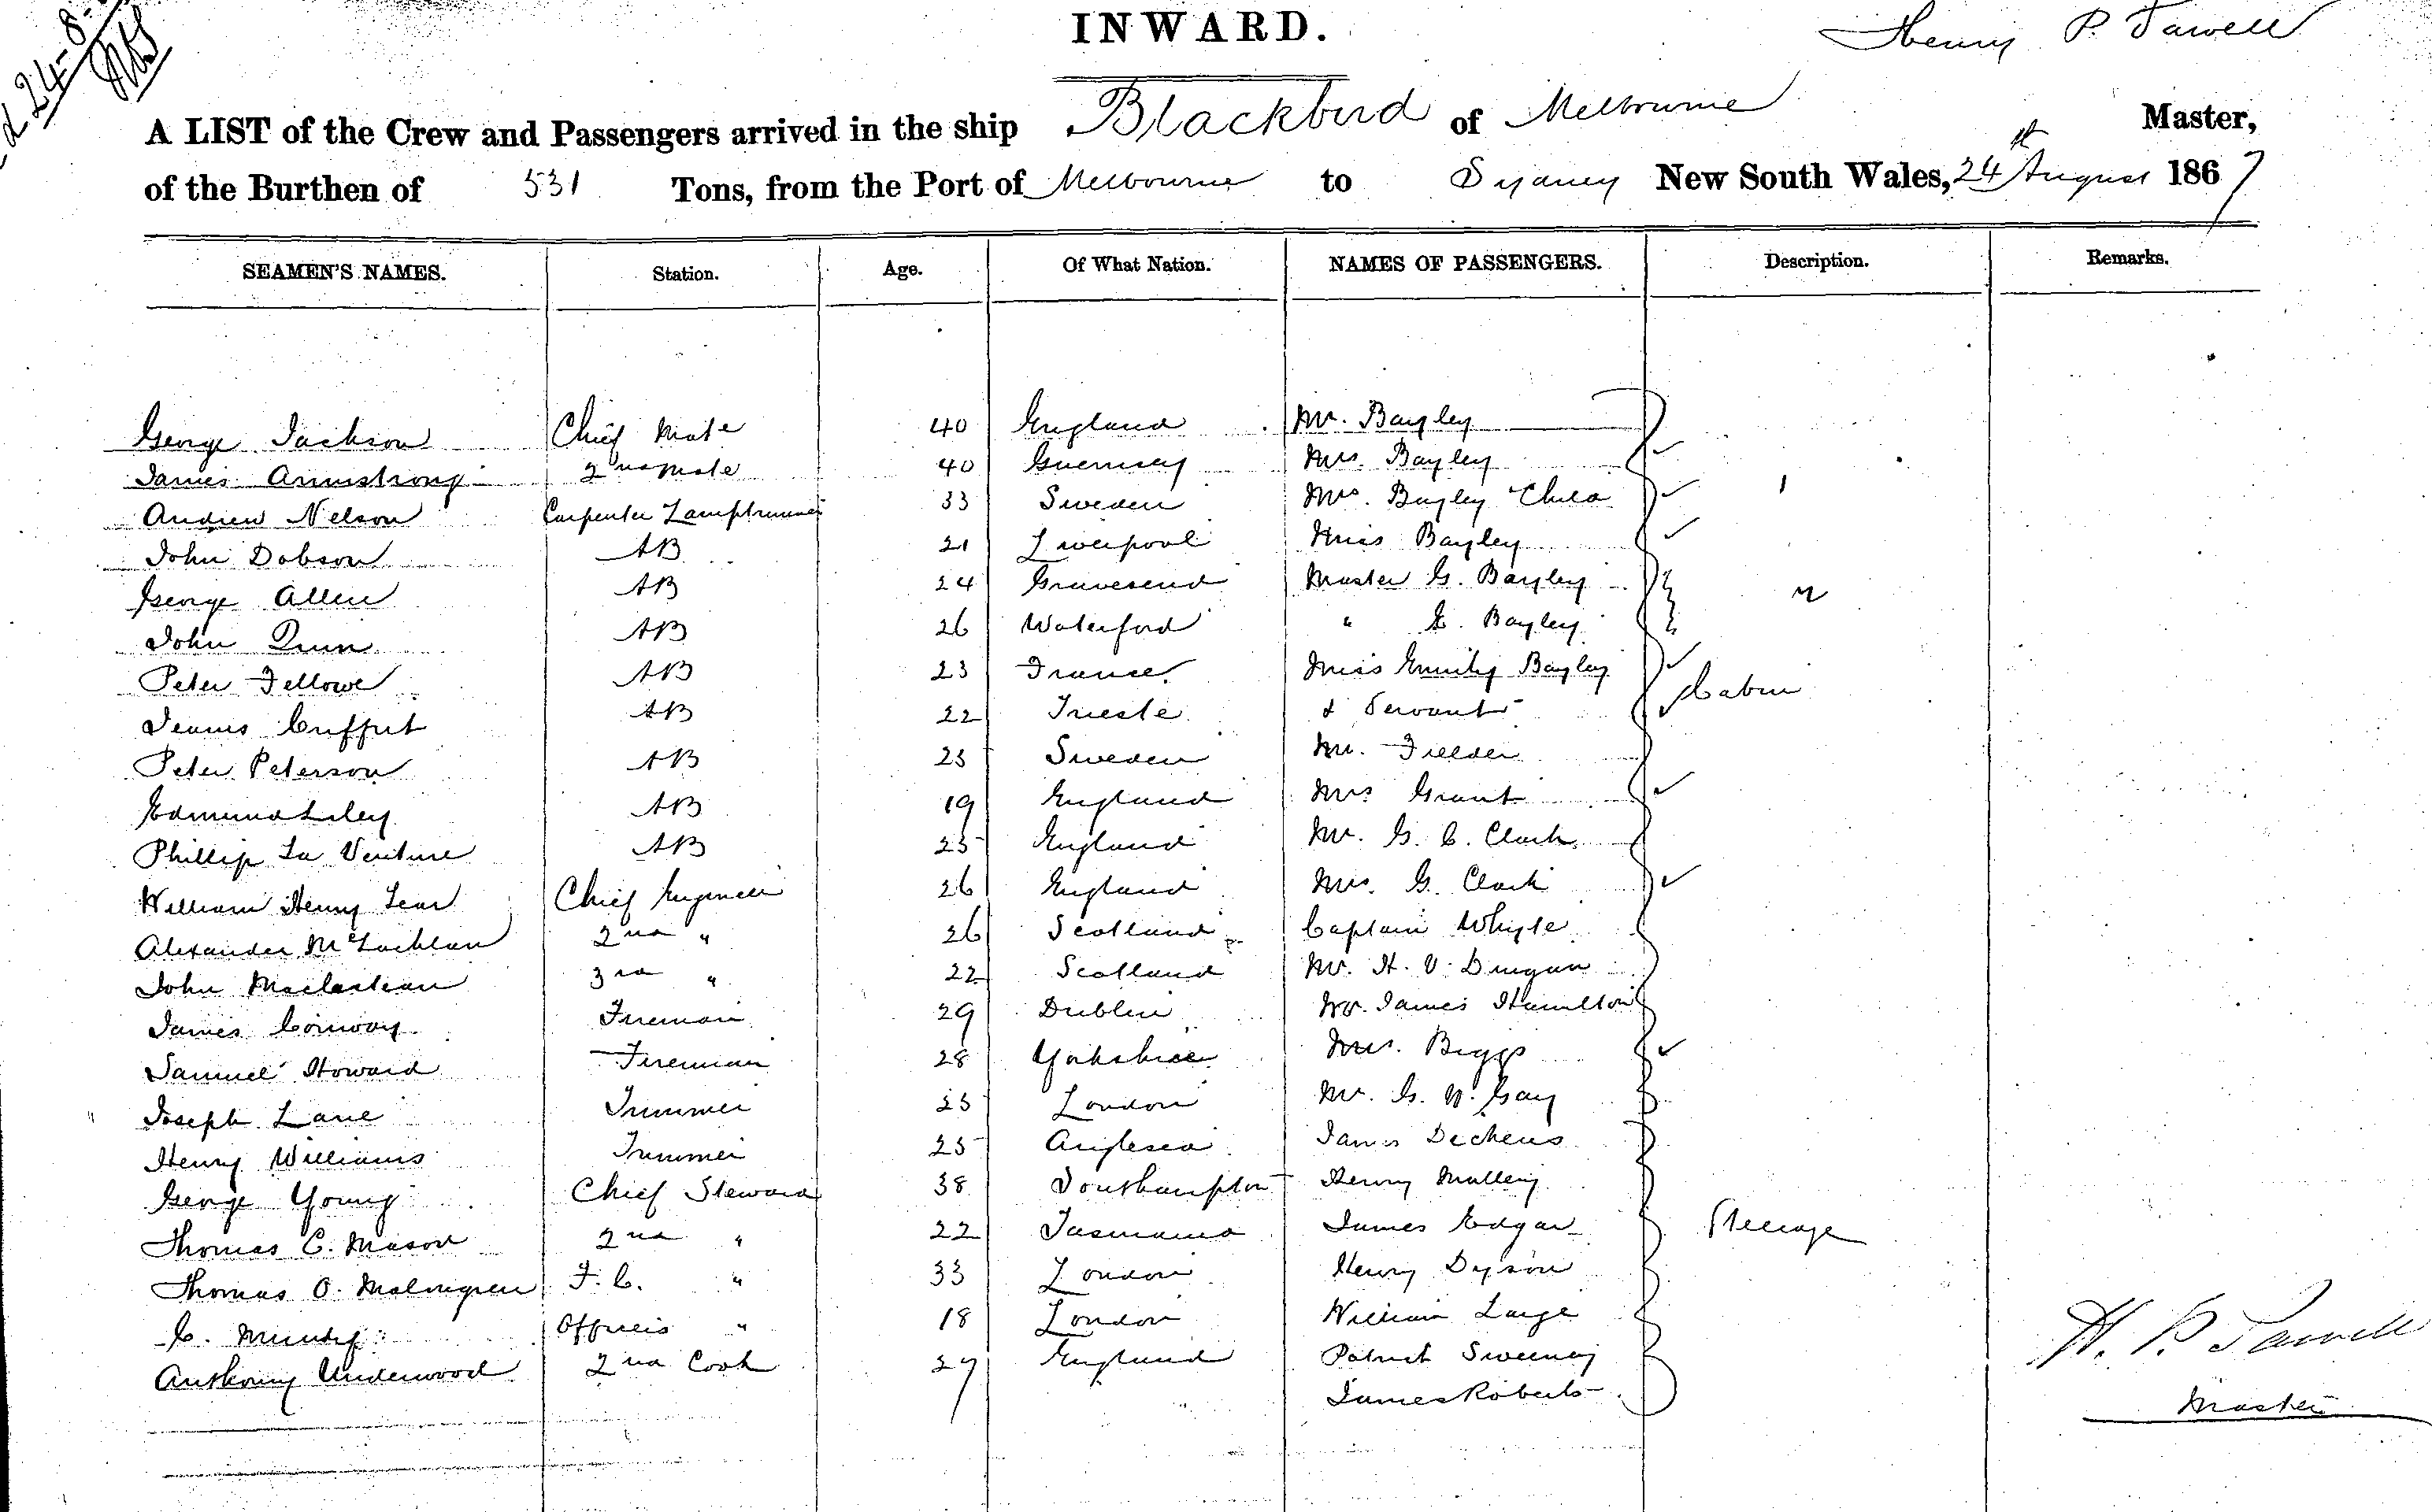 24-8-
INWARD.
Henry P. Tawell
A LIST of the Crew and Passengers arrived in the ship Blackbird of Melbourne Master,
of the Burthen of 531 Tons, from the Port of Melbourne to Sydney New South Wales, 24th August 1867
SEAMEN'S NAMES. Station. Age. Of What Nation. NAMES OF PASSENGERS. Description. Remarks.
George Jackson Chief Mate 40 England Mr. Bayley
James Armstrong 2nd Mate 40 Guernsey Mrs. Bayley
Andrew Nelson Carpenter Lamptrimmer 33 Sweden Mrs. Bayley Child
John Dobson AB 21 Liverpool Miss Bayley
George Allen AB 24 Gravesend Master G. Bayley
John Quin AB 26 Waterford " E. Bayley
Peter Fellowe AB 23 France Miss Emily Bayley
AB 22 Trieste & Servant Cabin
Peter Peterson AB 25 Sweden Mr. Fielder
Edmund Liley AB 19 England Mrs Grant
Phillip La Venture AB 25 England Mr. G. C. Clark
William Henry Lear Chief Engineer 26 England Mrs. G. Clark
Alexander McLachlan 2nd " 26 Scotland Captain Whyte
John 3rd " 22 Scotland Mr. H. V. Dungan
James Conway Fireman 29 Dublin Mr. James Hamilton
Samuel Howard Fireman 28 Yorkshire Mrs. Biggs
Joseph Lane Trimmer 25 London Mr. G. W. Gay
Henry Williams Trimmer 25 Anglesea James Dechens
George Young Chief Steward 38 Southampton Henry Malley
Thomas C. Mason 2nd " 22 Tasmania James Edgar Steerage
Thomas O. Malmgren F. C. " 33 London Henry Dyson
C. Mundy Officers " 18 London William Large
Anthony Underwood 2nd Cook 27 England Patrick Sweeney
James Roberts
H. P. Tawell
Master